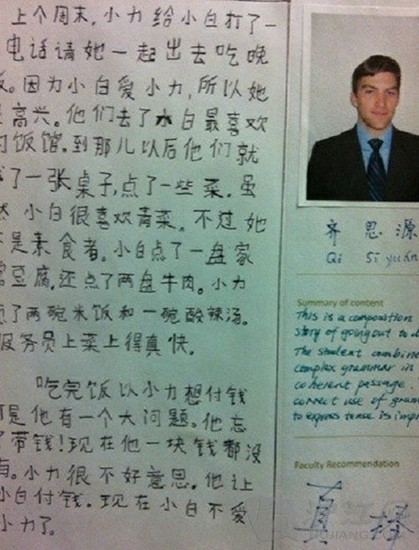 上个周末,小力给小白打了一
电话请她一起出去吃晚
。因为小白爱小力,所以她
高兴。他们去了小白最喜欢
饭馆.到那儿以后他们就
了一张桌子,点了一些菜.虽
小白很喜欢青菜。不过她
是素食者。小白点了一盘家
豆腐,还点了两盘牛肉。小力
了两碗米饭和一碗酸辣汤。
服务员上菜上得真快。
吃完饭以小力想付钱
是他有一个大问题。他忘
了带钱!现在他一块钱都没
。小力很不好意思。他让
小白付钱.现在小白不爱
小力了。
齐思源
Qi Sīyuán
Summary of content
This is a composition
story of going out to d
The student combine
complex grammar in
coherent passage
correct use of gram
to express tense is imp
Faculty Recommendation
真棒